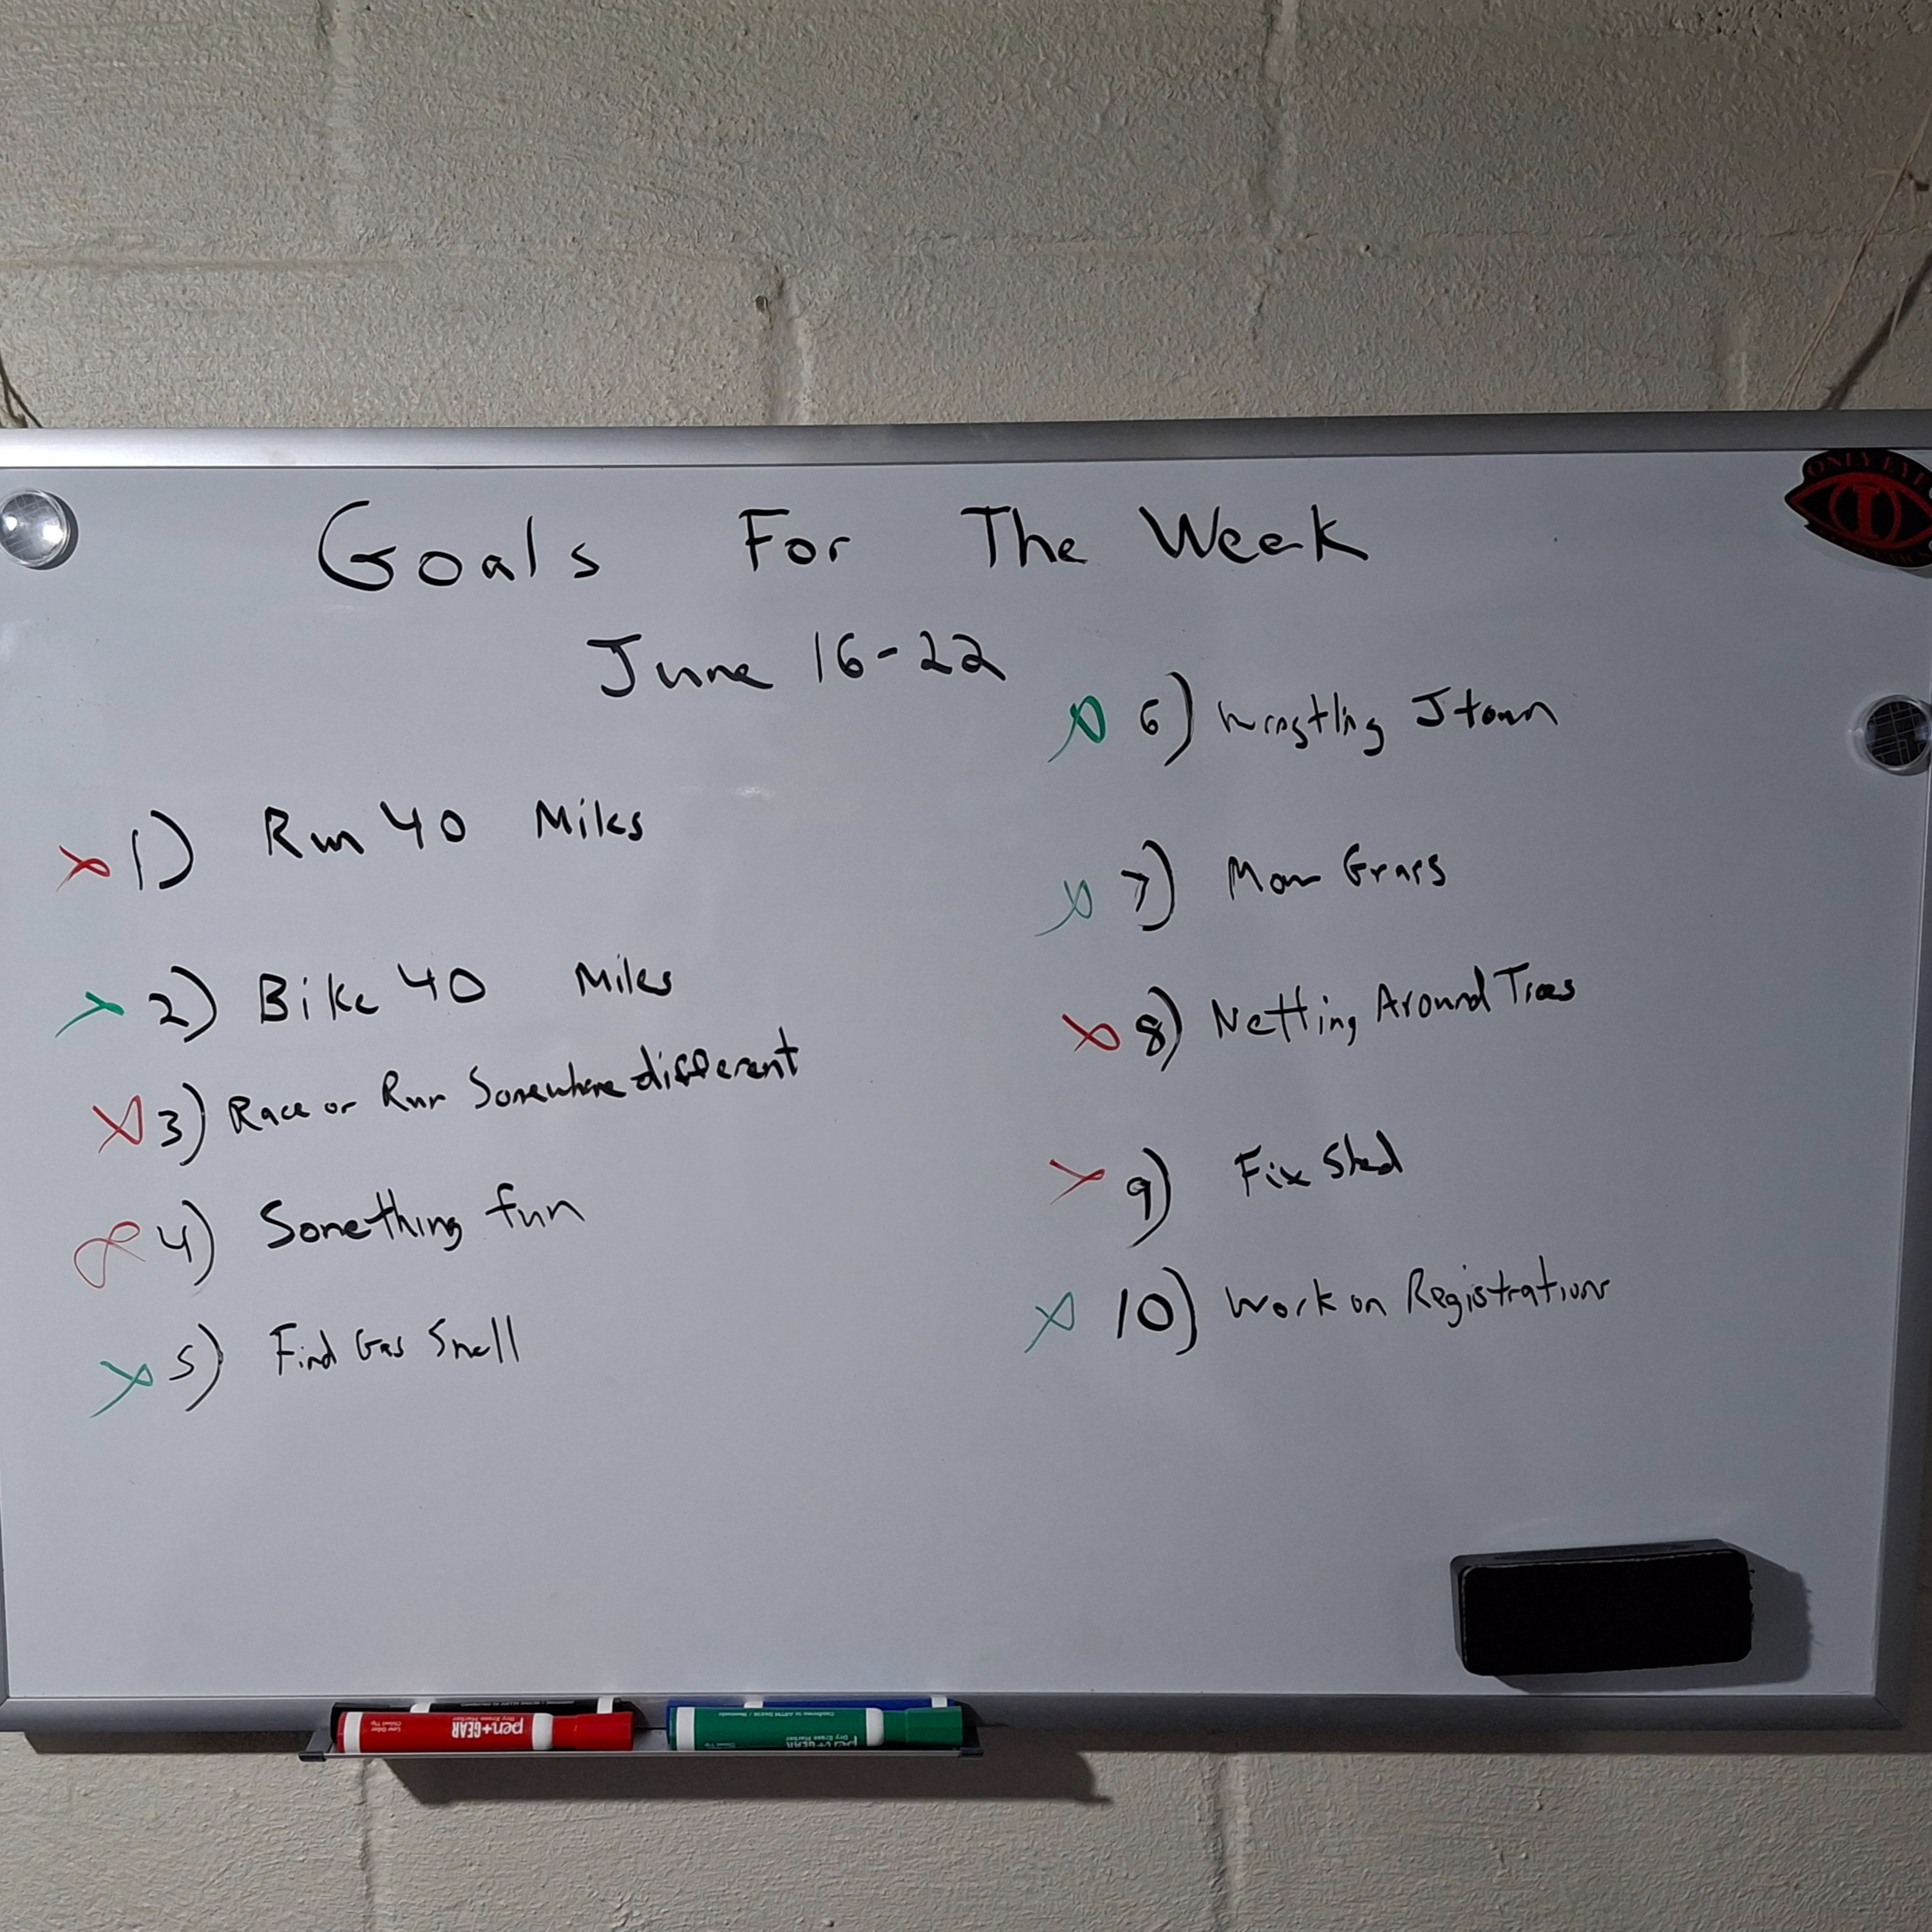 Goals For The Week
June 16-22
1) Run 40 Miles
2) Bike 40 Miles
3) Race or Run Somewhere different
4) Something fun
5) Find Gas Smell
6) Wrestling Jtown
7) Mow Grass
8) Netting Around Trees
9) Fix Shed
10) Work on Registrations
ONLY EYE
I
pen+GEAR
Dry Erase Marker
Low Odor
Chisel Tip
pen+GEAR
Dry Erase Marker